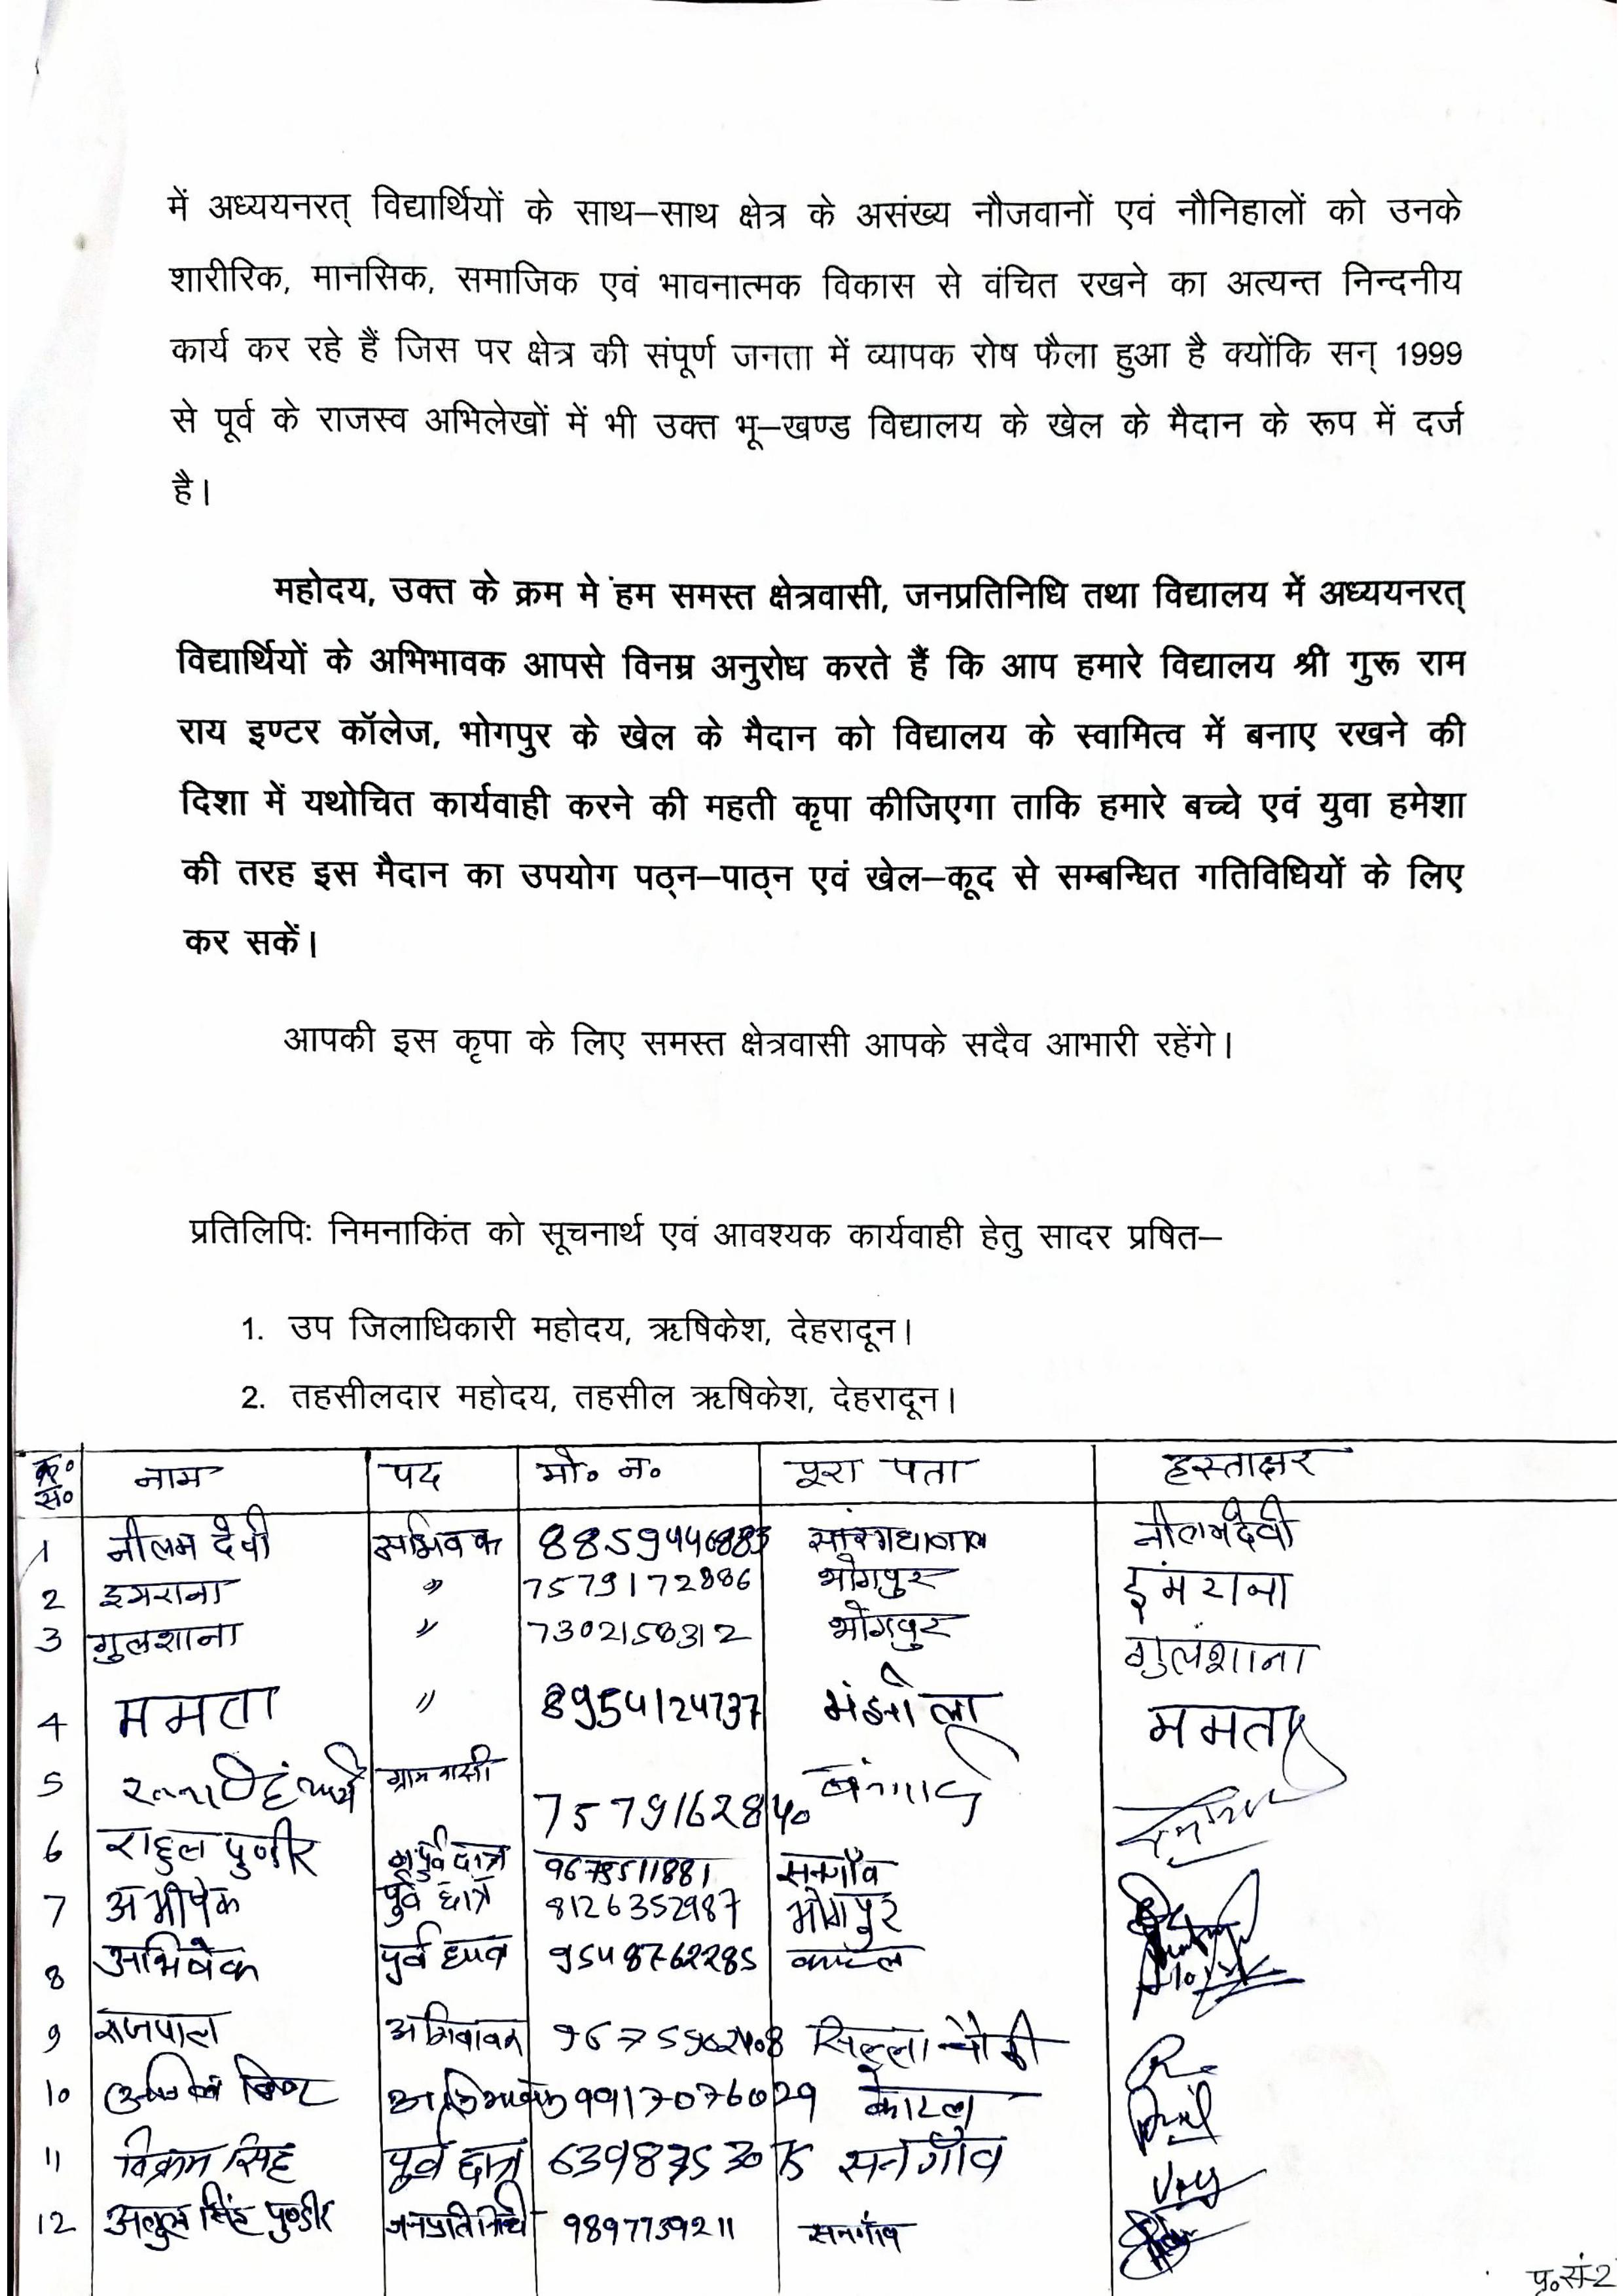 में अध्ययनरत् विद्यार्थियों के साथ–साथ क्षेत्र के असंख्य नौजवानों एवं नौनिहालों को उनके
शारीरिक, मानसिक, समाजिक एवं भावनात्मक विकास से वंचित रखने का अत्यन्त निन्दनीय
कार्य कर रहे हैं जिस पर क्षेत्र की संपूर्ण जनता में व्यापक रोष फैला हुआ है क्योंकि सन् 1999
से पूर्व के राजस्व अभिलेखों में भी उक्त भू–खण्ड विद्यालय के खेल के मैदान के रूप में दर्ज
है।
महोदय, उक्त के क्रम में हम समस्त क्षेत्रवासी, जनप्रतिनिधि तथा विद्यालय में अध्ययनरत्
विद्यार्थियों के अभिभावक आपसे विनम्र अनुरोध करते हैं कि आप हमारे विद्यालय श्री गुरू राम
राय इण्टर कॉलेज, भोगपुर के खेल के मैदान को विद्यालय के स्वामित्व में बनाए रखने की
दिशा में यथोचित कार्यवाही करने की महती कृपा कीजिएगा ताकि हमारे बच्चे एवं युवा हमेशा
की तरह इस मैदान का उपयोग पठ्न–पाठ्न एवं खेल–कूद से सम्बन्धित गतिविधियों के लिए
कर सकें।
आपकी इस कृपा के लिए समस्त क्षेत्रवासी आपके सदैव आभारी रहेंगे।
प्रतिलिपिः निमनाकिंत को सूचनार्थ एवं आवश्यक कार्यवाही हेतु सादर प्रषित–
1. उप जिलाधिकारी महोदय, ऋषिकेश, देहरादून।
2. तहसीलदार महोदय, तहसील ऋषिकेश, देहरादून।
क्र० स० नाम पद मो० न० पूरा पता हस्ताक्षर
1 नीलम देवी नीलम देवी
2 इमराना " 7579172886 भोगपुर इमराना
3 गुलशाना " 7302158312 भोगपुर गुलशाना
4 ममता " 8954124737 ममता
5 ग्रामवासी 7579162840
6 राहुल पुण्डीर पूर्व छात्र सनगाँव
7 अभीषेक पुर्व छात्र 8126352987 भोगपुर
8 अभिषेक पुर्व छात्र 9548762285
9 राजपाल अभिवावक सिल्ला चौकी
10 9917076029 कोटल
11 विक्रम सिंह पूर्व छात्र सनगाँव
12 अतुल सिंह पुण्डीर जनप्रतिनिधि 9897739211 सनगाँव
पृ.सं-2